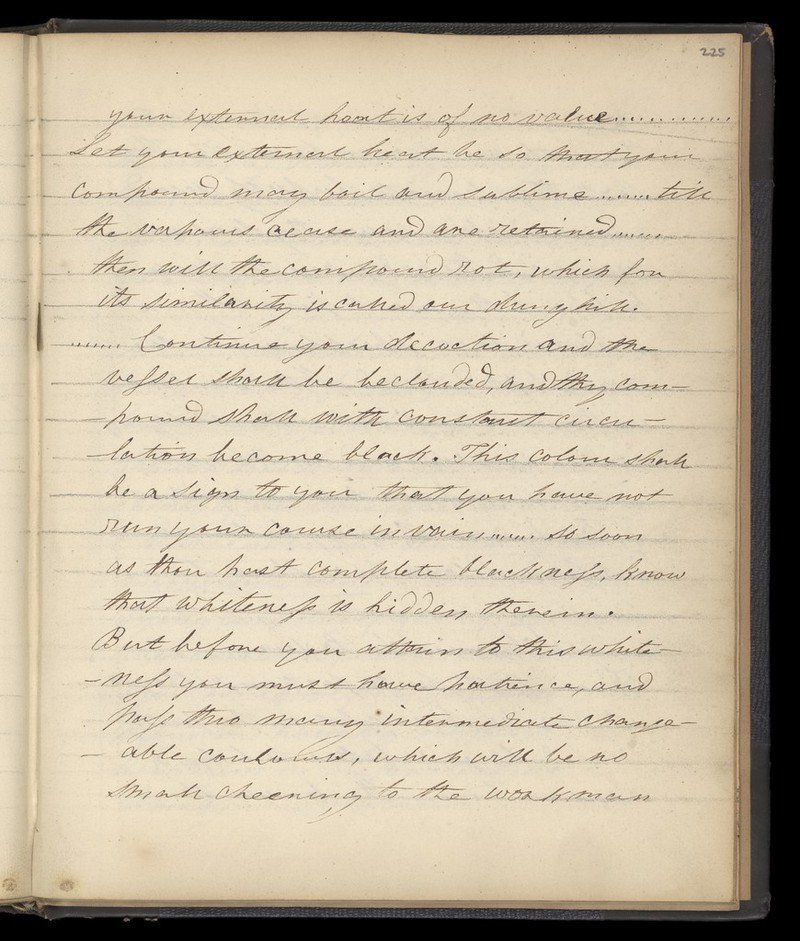 225
your external heat is of no value..............
Let your external heat be so that your
compound may boil and sublime........till
the vapours cease and are retained.......
then will the compound rot, which for
its similarity is called our dung hill.
....... Continue your decoction and the
veſsel shall be beclouded, and thy com-
-pound shall with constant circu-
-lation become black. This colour shall
be a sign to you that you have not
run your course in vain....... so soon
as thou hast complete blackneſs, know
that whiteneſs is hidden therein.
But before you attain to this white-
-neſs you must have patience, and
paſs thro many intermediate change-
- able coulours, which will be no
small cheering to the workman